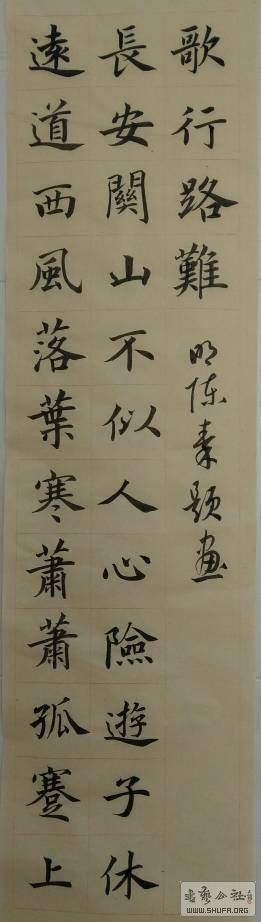 遠道西風落葉寒蕭蕭孤蹇上
長安關山不似人心險遊子休
歌行路難
明陈素题画
书艺公社
WWW.SHUFA.ORG